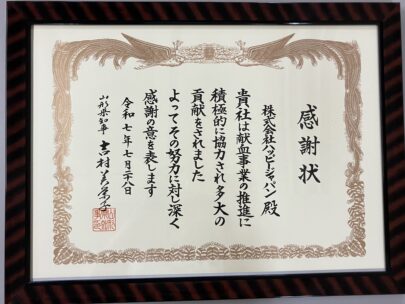 感謝状
株式会社ハッピージャパン殿
貴社は献血事業の推進に
積極的に協力され多大の
貢献をされました
よってその努力に対し深く
感謝の意を表します
令和七年七月二十八日
山形県知事 吉村美栄子